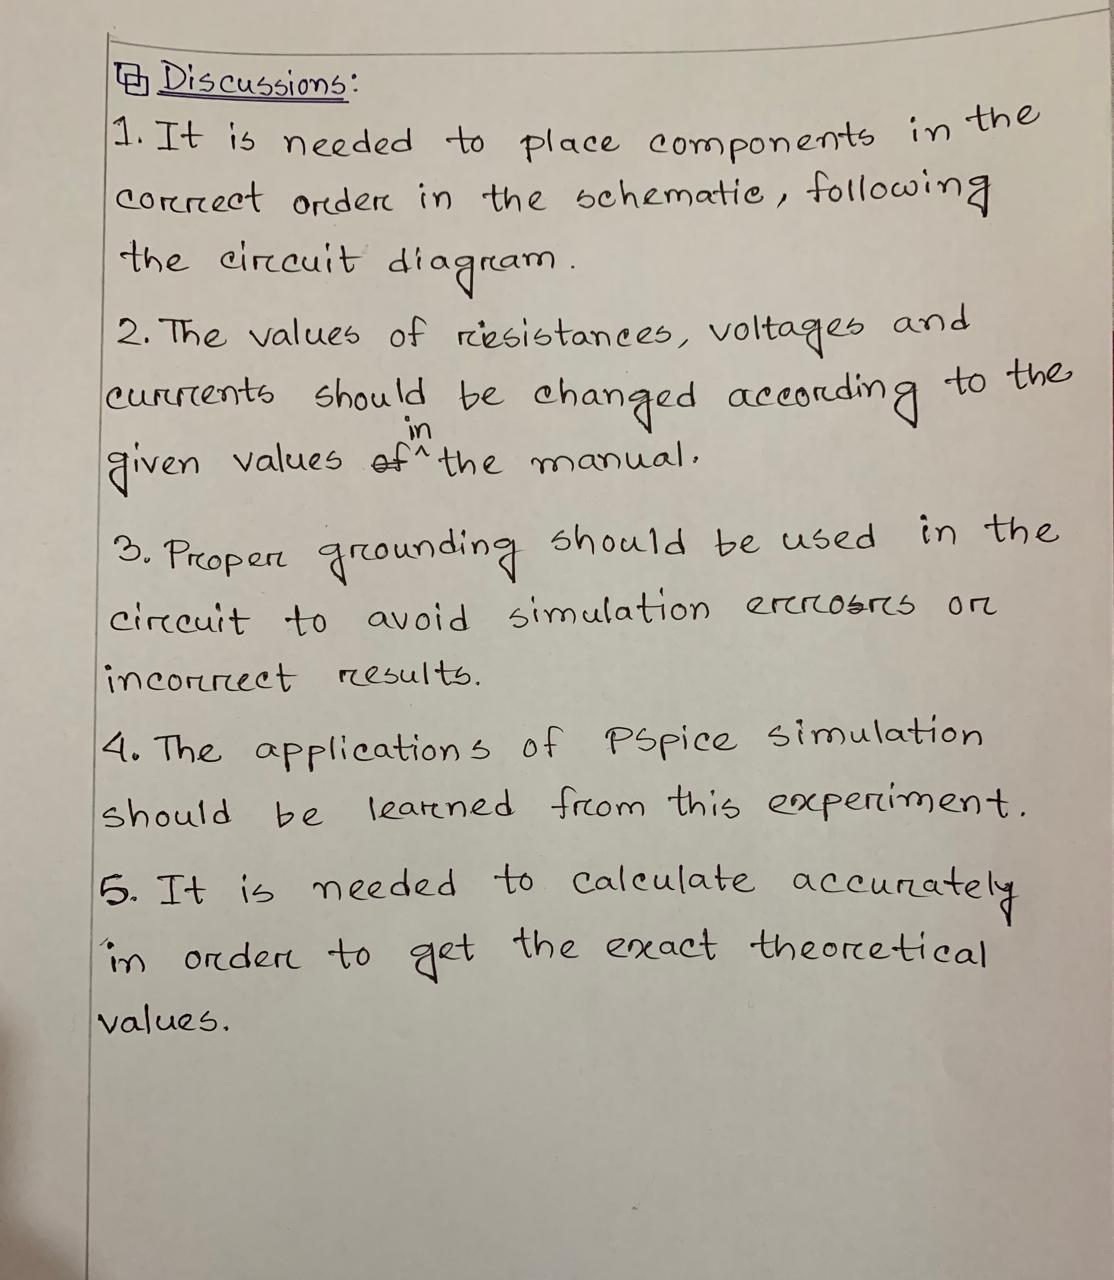 Discussions:
1. It is needed to place components in the
correct order in the schematic, following
the circuit diagram.
2. The values of resistances, voltages and
currents should be changed according to the
given values in the manual.
3. Proper grounding should be used in the
circuit to avoid simulation errors or
incorrect results.
4. The applications of Pspice simulation
should be learned from this experiment.
5. It is needed to calculate accurately
in order to get the exact theoretical
values.